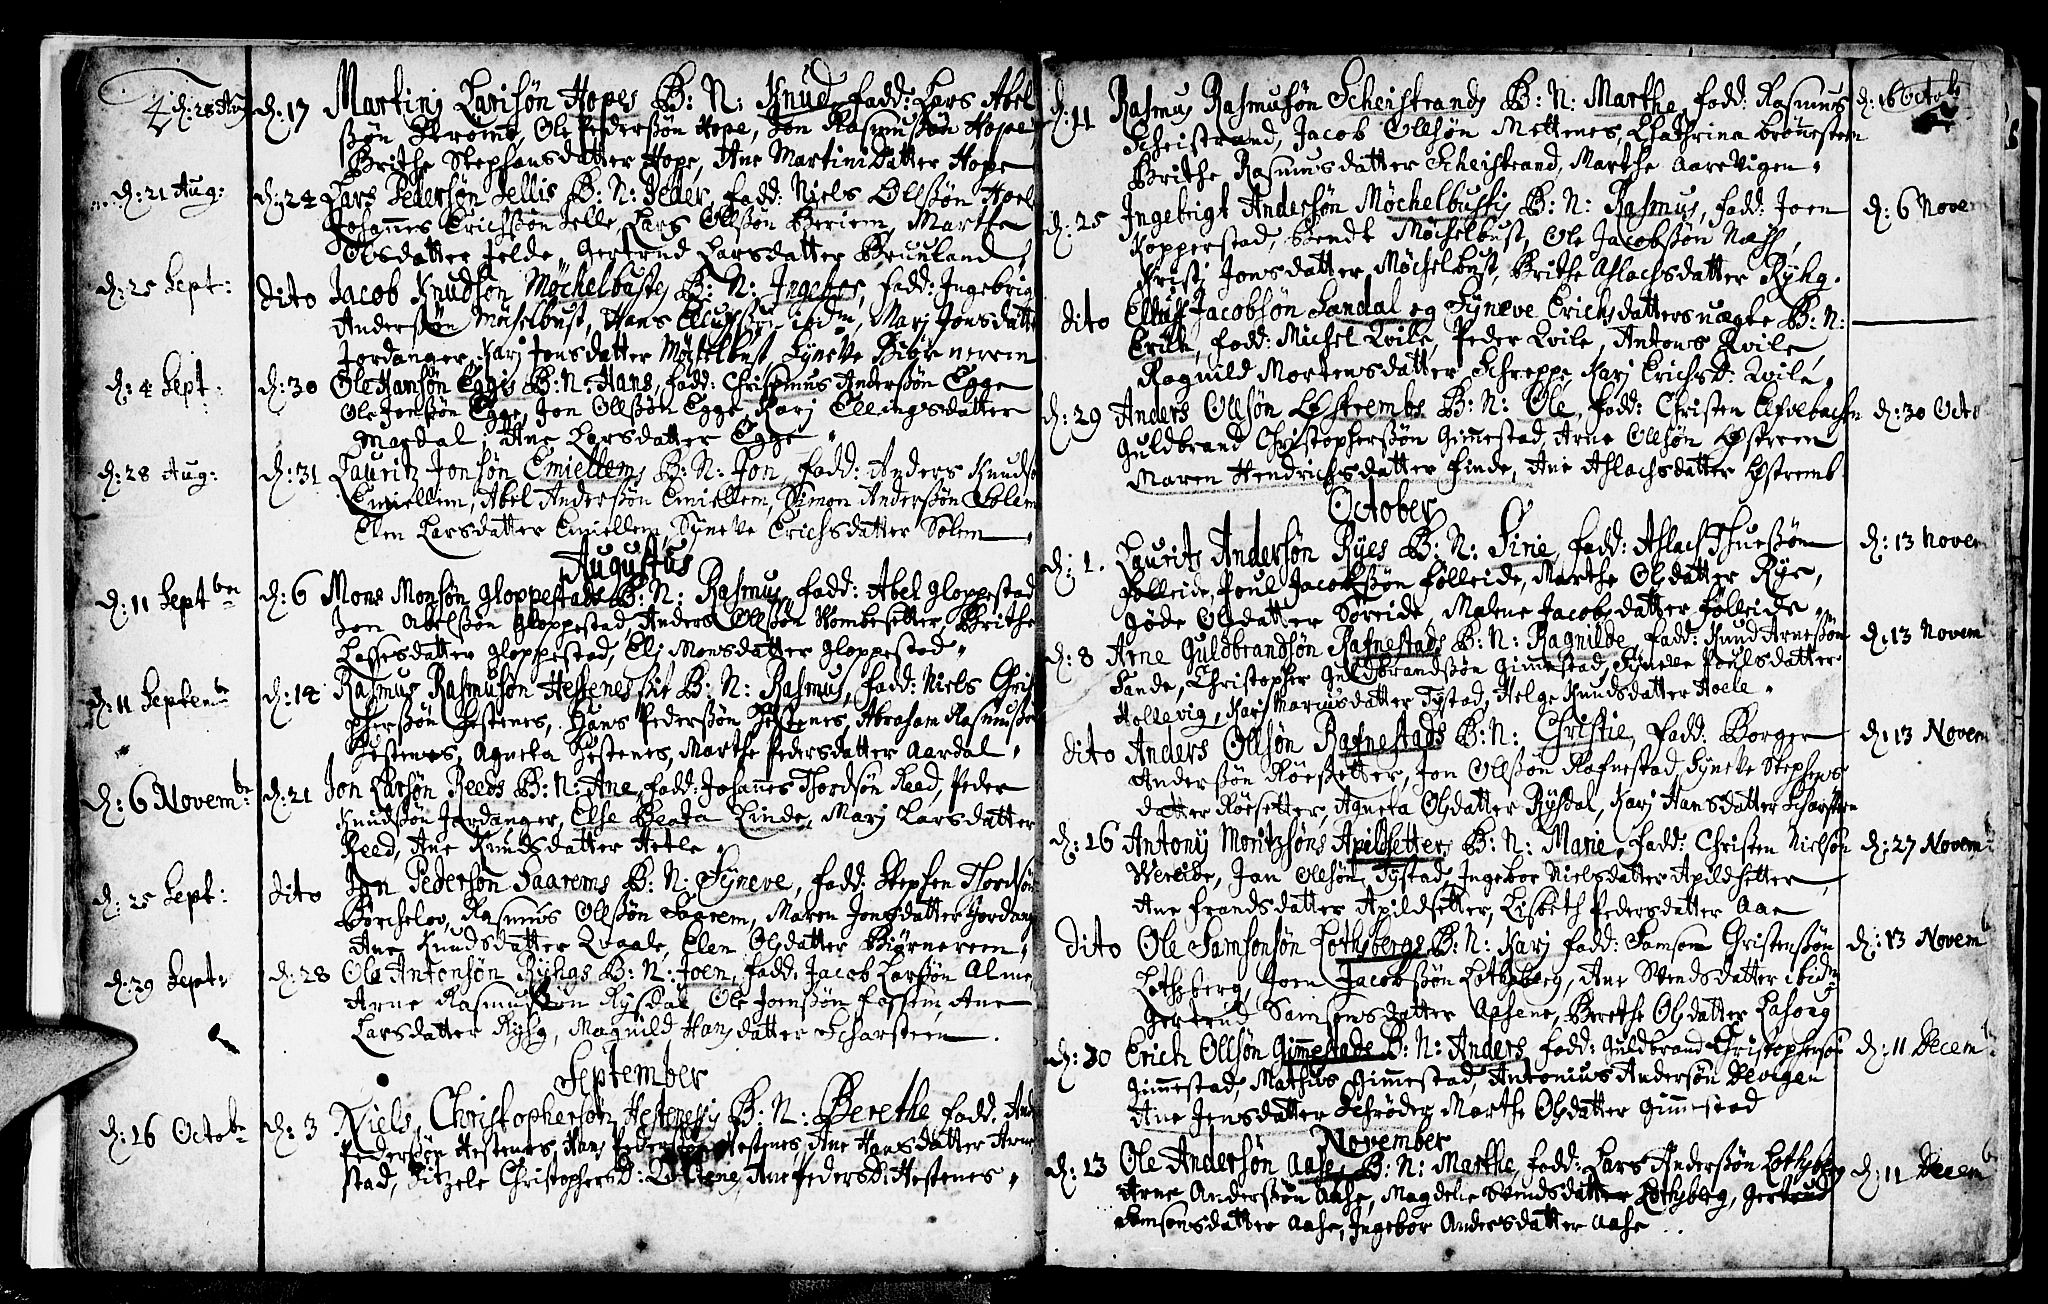 4 d: 28 Aug
d: 17 Martinj Larsøn Hopes B: N: Knud, fadd: Lars Abel
ßøn Strømb, Ole Pederßøn Hope, Jon Rasmußøn Hope,
Brithe Stephansdatter Hope, Ane Martinidatter Hope
d: 21 Aug:
d: 24 Lars Pedersøn Jellis B: N: Peder, fadd: Niels Ollßøn Hoel
Johannes Erichßøn Jelle, Lars Ollßøn Beriem, Marthe
Olsdatter felde, Gertrud Larsdatter Bruuland,
d: 25 Sept:
dito Jacob Knudsøn Møchelbustes B: N: Ingebor, fadd: Ingebrig
Anderßøn Møchelbust, Hans ibdm, Marj Jonsdatt
Jordanger, Karj Jonsdatter Møchelbust, Syneve
d: 4 Sept:
d: 30 Ole Hansøn Eggis B: N: Hans, fadd: Anderßøn Egge
Ole Jonßøn Egge, Jon Ollßøn Egge, Karj Ellingsdatter
Mardal, Ane Larsdatter Egge
d: 28 Aug:
d: 31 Lauritz Jonsøn Emiellems B: N: Jon, fadd: Anders Knuds
Emiellem, Abel Anderßøn Emiellem, Simon Anderßøn Solem
Elen Larsdatter Emiellem, Syneve Erichsdatter Solem
Augustus
d: 11 Septbr
d: 6 Mons Monsøn Gloppestads B: N: Rasmus, fadd: Abel Gloppestad
Jon Abelßøn Gloppestad, Anders Ollßøn Wombesetter, Brithe
Lassesdatter Gloppestad, Eli Monsdatter Gloppestad
d: 11 Septembr
d: 14 Rasmus Rasmusøn Hestenes sit B: N: Rasmus, fadd: Niels Chris
pherßøn Hestenes, Hans Pederßøn Hestenes, Abraham Rasmußø
Hestenes, Agneta Hestenes, Marthe Pedersdatter Aardal
d: 6 Novembr:
d: 21 Jon Larsøn Reeds B: N: Ane, fadd: Johannes Thordsøn Reed, Peder
Knudßøn Jordanger, Else Beata Linde, Marj Larsdatter
Reed, Ane Knudsdatter Hetle
d: 25 Sept:
dito Jon Pedersøn Saarems B: N: Syneve, fadd: Stephen Thordsøn
Rasmus Ollßøn Saarem, Maren Jonsdatter Jordang
Ane Knudsdatter Qvaale, Elen Olsdatter Biørnereem
d: 29 Sept:
d: 28 Ole Antonsøn Rykgs B: N: Joen, fadd: Jacob Larsøn Alme
Arne Rasmusßøn Rysdal, Ole Joenßøn Fossem, Ane
Larsdatter Rykg, Magnild Hansdatter Scharsteen.
September
d: 16 Octobr
d: 3 Niels Christophersøn Hestenesis B: N: Berethe fadd: And
Pederßøn Hestenes, Hans Pederßøn Hestenes, Ane Hansdatter Arne
stad, Sitzele Christophersd: Ane Pedersd: Hestenes
d: 11 Rasmus Rasmusøn Scheistrands B: N: Marthe, fadd: Rasmus
d: 16 Octob
Scheistrand, Jacob Ollsøn Mettenes, Chathrina Brønnesteen
Brithe Rasmusdatter Scheistrand, Marthe Aarevigen
d: 25 Ingebrigt Andersøn Møchelbustis B: N: Rasmus, fadd: Joen
d: 6 Novem
Kopperstad, Bendt Møchelbust, Ole Jacobßøn Næss,
Kristj Jonsdatter Møchelbust, Brithe Aslachsdatter Rykg.
dito Elluf Jacobsøn Sandal og Syneve Erichsdatters uægte B: N:
Erich, fadd: Michel Qvile, Peder Qvile, Antons Qvile,
Ragnild Mortensdatter Schreppe, Karj Erichsd: Qvile
d: 29 Anders Ollsøn Løstrembs B: N: Ole, fadd: Christen
d: 30 Octo
Guldbrand Christopherßøn Gimmestad, Arne Ollsøn Løstrem
Maren Hendrichsdatter Finde, Ane Aslachsdatter Løstremb.
October
d: 1. Laurits Andersøn Ryes B: N: Sirie, fadd: Aslach Thueßøn
d: 13 Novem
Følleide, Poul Jacobßøn Følleide, Marthe Olsdatter Rye,
Gøde Olsdatter Søreide, Malene Jacobsdatter Følleide
d: 8 Arne Guldbrandsøn Rafnestads B: N: Ragnilde, fadd: Knud Arneßøn
d: 13 Novem
Sande, Christopher Guldbrandßøn Gimmestad, Synneve Poulsdatter
Hollevig, Karj Mariusdatter Tystad, Helge Knudsdatter Hoele
dito Anders Ollsøn Rafnestads B: N: Christie, fadd: Borger
d: 13 Novem
Anderßøn Røesetter, Jon Ollßøn Rafnestad, Syneve Stephens
datter Røesetter, Agneta Olsdatter Rysdal, Karj Hansdatter Scharsteen
d: 16 Antonj Moritzsøns Apildsetters B: N: Marie, fadd: Christen Nielsøn
d: 27 Novem
Wereide, Jan Olesøn Tystad, Ingebor Nielsdatter Apildsetter
Ane Frandsdatter Apildsetter, Lisbeth Pedersdatter Aae
dito Ole Samsonsøn Lothsbergs B: N: Karj fadd: Samson Christenßøn
d: 13 Novem
Lothsberg, Joen Jacobßøn Lothsberg, Ane Svendsdatter ibidm
Gertrud Samsonsdatter Aasene, Berethe Olsdatter
d: 30 Erich Ollsøn Gimmestads B: N: Anders, fadd: Guldbrand Christophersøn
d: 11 Decem
Gimmestad, Mathias Gimmestad, Antonius Andersøn Devigen
Ane Jensdatter Schrøder, Marthe Olsdatter Gimmestad
November
d: 13 Ole Andersøn Aase, B: N: Marthe, fadd: Lars Anderßøn Lothsberg
d: 11 Decem
Arne Anderßøn Aase, Magdele Svendsdatter Lothsberg, Gertrud
Samsonsdatter Aase, Ingebor Andersdatter Aase